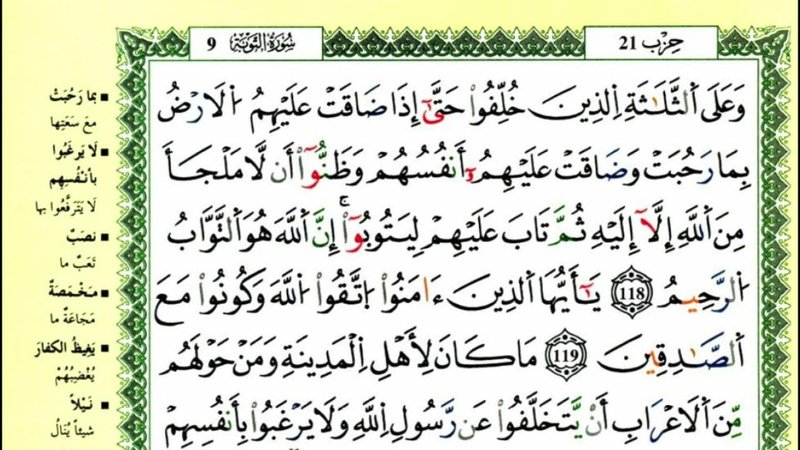 حزب 21
سورة التوبة 9
وَعَلَى اَلثَّلَٰثَةِ اِلذِينَ خُلِّفُواْ حَتَّىٰٓ إِذَا ضَاقَتْ عَلَيْهِمُ اُلَارْضُ
بِمَا رَحُبَتْ وَضَاقَتْ عَلَيْهِمُۥٓ أَنفُسُهُمْ وَظَنُّوٓاْ أَن لَّا مَلْجَأَ
مِنَ اَللَّهِ إِلَّآ إِلَيْهِ ثُمَّ تَابَ عَلَيْهِمْ لِيَتُوبُوٓاْۚ إِنَّ اَللَّهَ هُوَ اَلتَّوَّابُ
اُلرَّحِيمُ 118 يَٰٓأَيُّهَا اَلذِينَ ءَامَنُواْ اُتَّقُواْ اُللَّهَ وَكُونُواْ مَعَ
اَلصَّٰدِقِينَ 119 مَا كَانَ لِأَهْلِ اِلْمَدِينَةِ وَمَنْ حَوْلَهُم
مِّنَ اَلَاعْرَابِ أَنْ يَّتَخَلَّفُواْ عَن رَّسُولِ اِللَّهِ وَلَا يَرْغَبُواْ بِأَنفُسِهِمْ
■ بما رَحُبَتْ
مع سَعَتِها
■ لَا يَرغَبُوا
بأنفُسِهِم
لَا يَتَرَفَّعُوا بها
■ نصَبٌ
تَعَبٌ ما
■ مَخْمَصَةٌ
مَجَاعَةٌ ما
■ يَغيظُ الكفارَ
يُغْضِبُهُمْ
■ نَيْلاً
شيئاً يُنَالُ